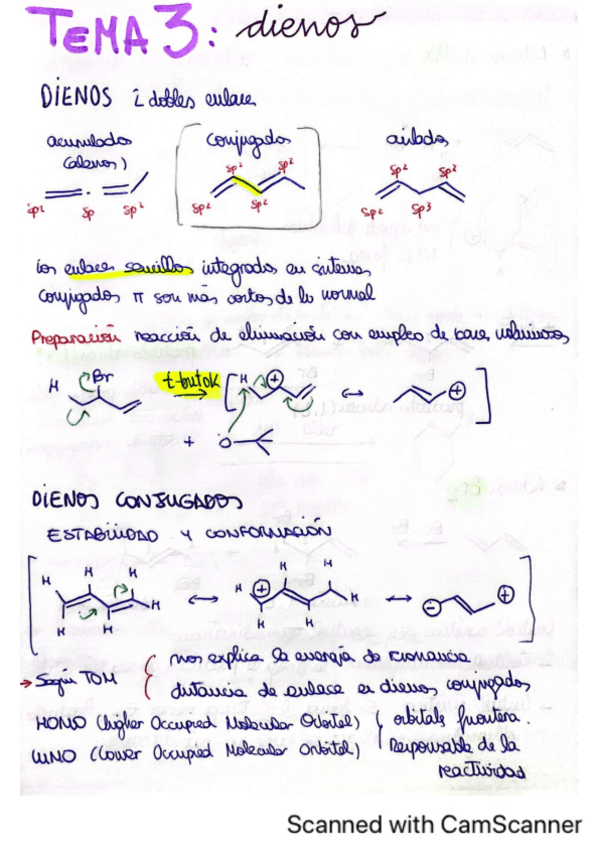 TEMA 3: dienos
DIENOS 2 dobles enlace
acumulados conjugados aislados
(alenos)
sp² sp sp² sp² sp² sp² sp² sp² sp² sp³ sp²
los enlaces sencillos integrados en sistemas
conjugados π son más cortos de lo normal
Preparación reacción de eliminación con empleo de bases voluminosas
H Br t-butok H ⊕ ↔ ⊕
+ O
DIENOS CONJUGADOS
ESTABILIDAD Y CONFORMACIÓN
H H H H H H ↔ H ⊕ H H H H H ↔ ⊖ ⊕
nos explica la energía de resonancia
→ Según TOM
distancia de enlace en dienos conjugados
HOMO (higher Occuped Molecular Orbital) orbitals frontera.
LUMO (Lower Occuped Molecular orbital) Responsable de la
reactividad
Scanned with CamScanner